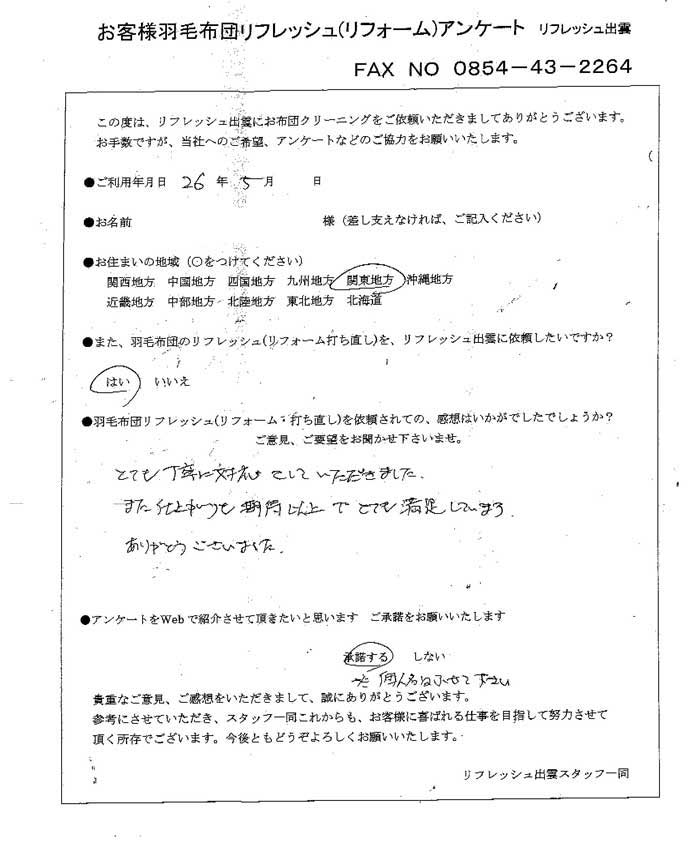 お客様羽毛布団リフレッシュ(リフォーム)アンケート リフレッシュ出雲
FAX NO 0854-43-2264
この度は、リフレッシュ出雲にお布団クリーニングをご依頼いただきましてありがとうございます。
お手数ですが、当社へのご希望、アンケートなどのご協力をお願いいたします。
●ご利用年月日 26 年 5 月 日
●お名前 様（差し支えなければ、ご記入ください）
●お住まいの地域（〇をつけてください）
関西地方 中国地方 四国地方 九州地方 関東地方 沖縄地方
近畿地方 中部地方 北陸地方 東北地方 北海道
●また、羽毛布団のリフレッシュ(リフォーム打ち直し)を、リフレッシュ出雲に依頼したいですか？
はい いいえ
●羽毛布団リフレッシュ(リフォーム・打ち直し)を依頼されての、感想はいかがでしたでしょうか？
ご意見、ご要望をお聞かせ下さいませ。
とても丁寧に対応をしていただきました。
また仕上がりも期待以上でとても満足しています
ありがとうございました。
●アンケートをWebで紹介させて頂きたいと思います ご承諾をお願いいたします
承諾する しない
貴重なご意見、ご感想をいただきまして、誠にありがとうございます。
参考にさせていただき、スタッフ一同これからも、お客様に喜ばれる仕事を目指して努力させて
頂く所存でございます。今後ともどうぞよろしくお願いいたします。
リフレッシュ出雲スタッフ一同